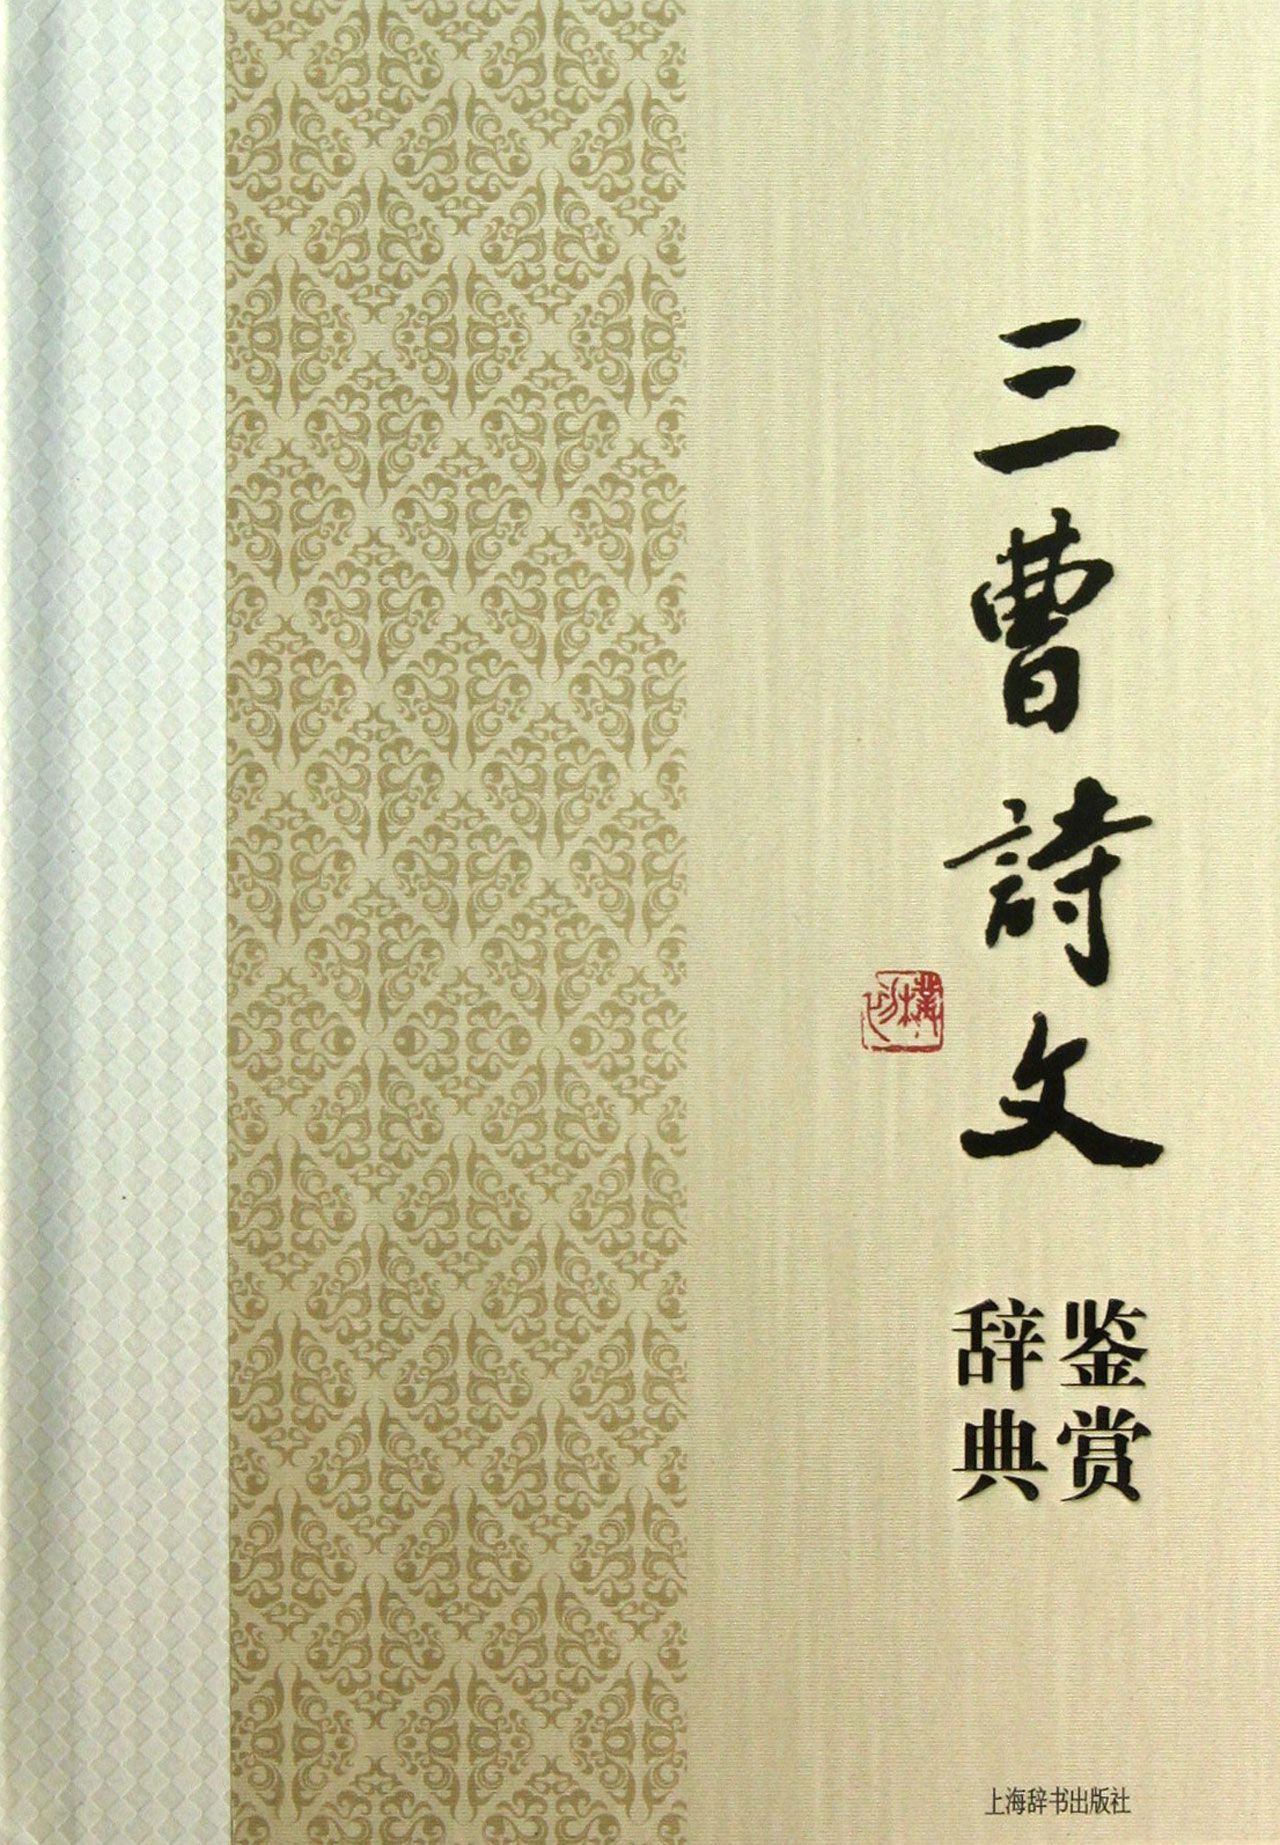 三曹詩文
鉴赏
辞典
上海辞书出版社